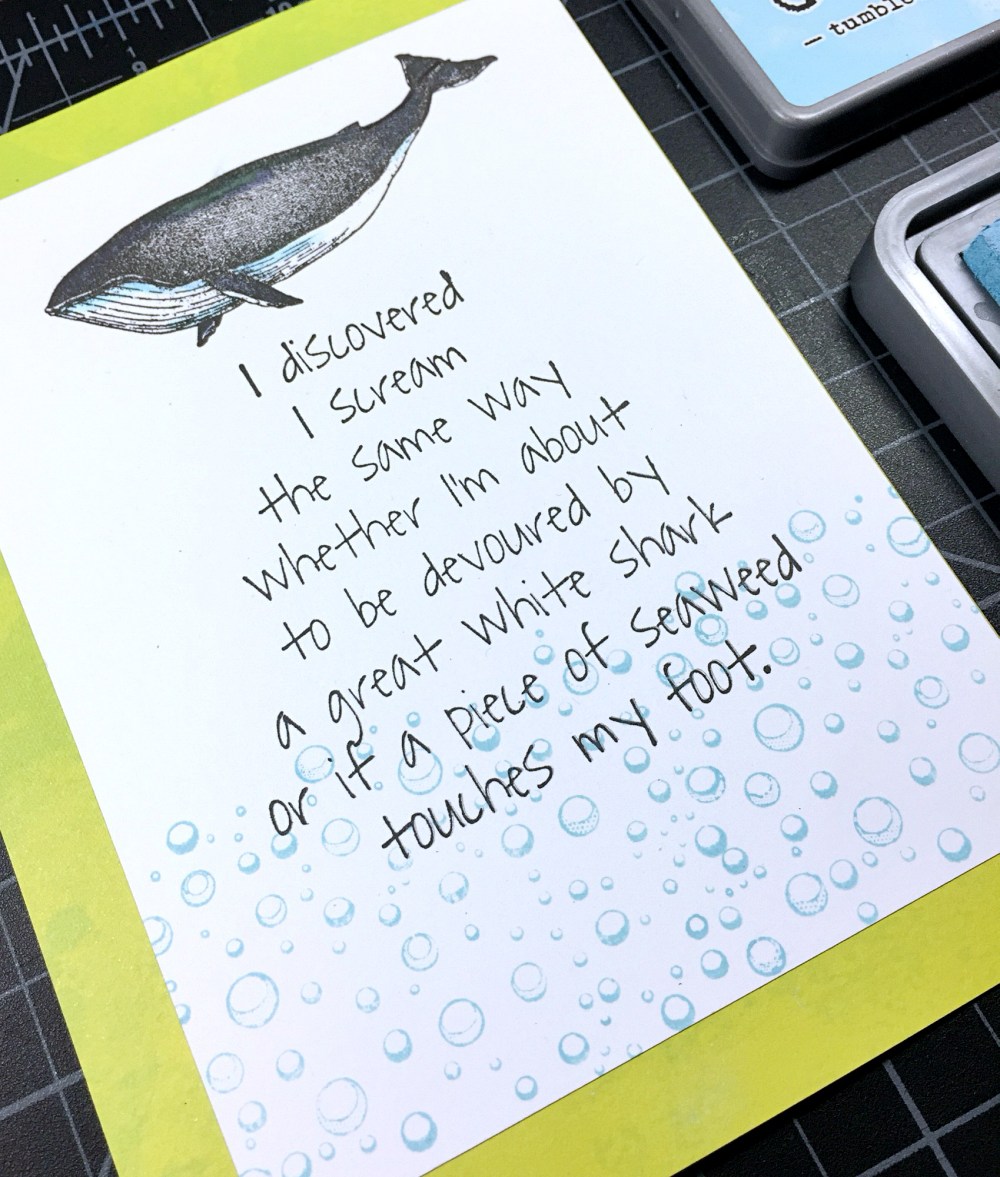 — tumble
9
I discovered
I scream
the same way
whether I'm about
to be devoured by
a great white shark
or if a piece of seaweed
touches my foot.